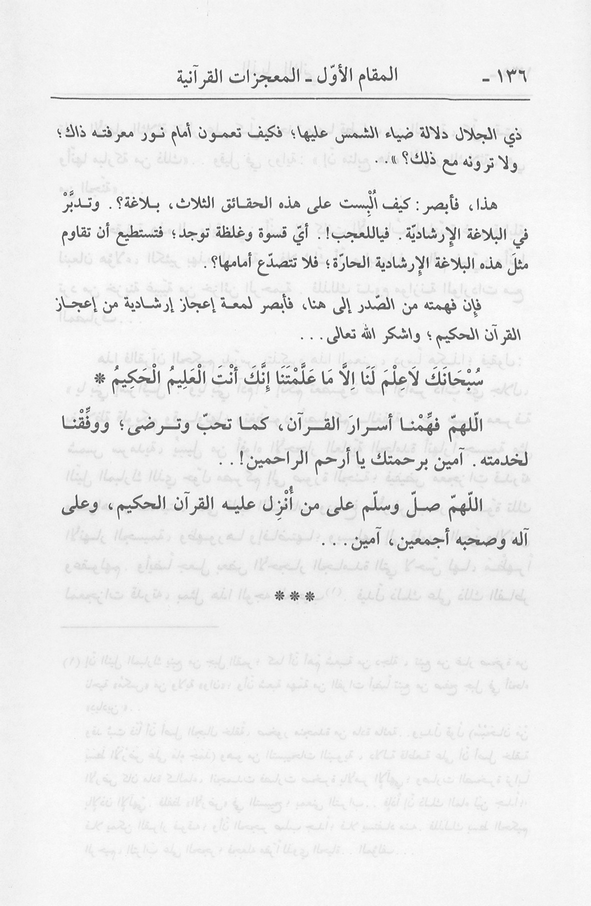 ١٣٦ - المقام الأوّل - المعجزات القرآنية
ذي الجلال دلالة ضياء الشمس عليها؛ فكيف تعمون أمام نور معرفته ذاك؛
ولا ترونه مع ذلك؟ »..
هذا، فأبصر: كيف أُلْبِست على هذه الحقائق الثلاث، بلاغة؟. وتدبَّرْ
في البلاغة الإرشاديّة. فياللعجب!. أيّ قسوة وغلظة توجد؛ فتستطيع أن تقاوم
مثلَ هذه البلاغة الإرشادية الحارّة؛ فلا تتصدّع أمامها؟.
فإن فهمته من الصّدر إلى هنا، فأبصر لمعة إعجاز إرشادية من إعجاز
القرآن الحكيم؛ واشكر الله تعالى...
سُبْحَانَكَ لَاعِلْمَ لَنَا إِلَّا مَا عَلَّمْتَنَا إِنَّكَ أَنْتَ الْعَلِيمُ الْحَكِيمُ *
اللّهمّ فهِّمْنا أسرارَ القرآن، كما تحبّ وترضى؛ ووفِّقْنا
لخدمته. آمين برحمتك يا أرحم الراحمين!..
اللّهمّ صلّ وسلّم على من أُنْزِل عليه القرآن الحكيم، وعلى
آله وصحبه أجمعين، آمين...
***